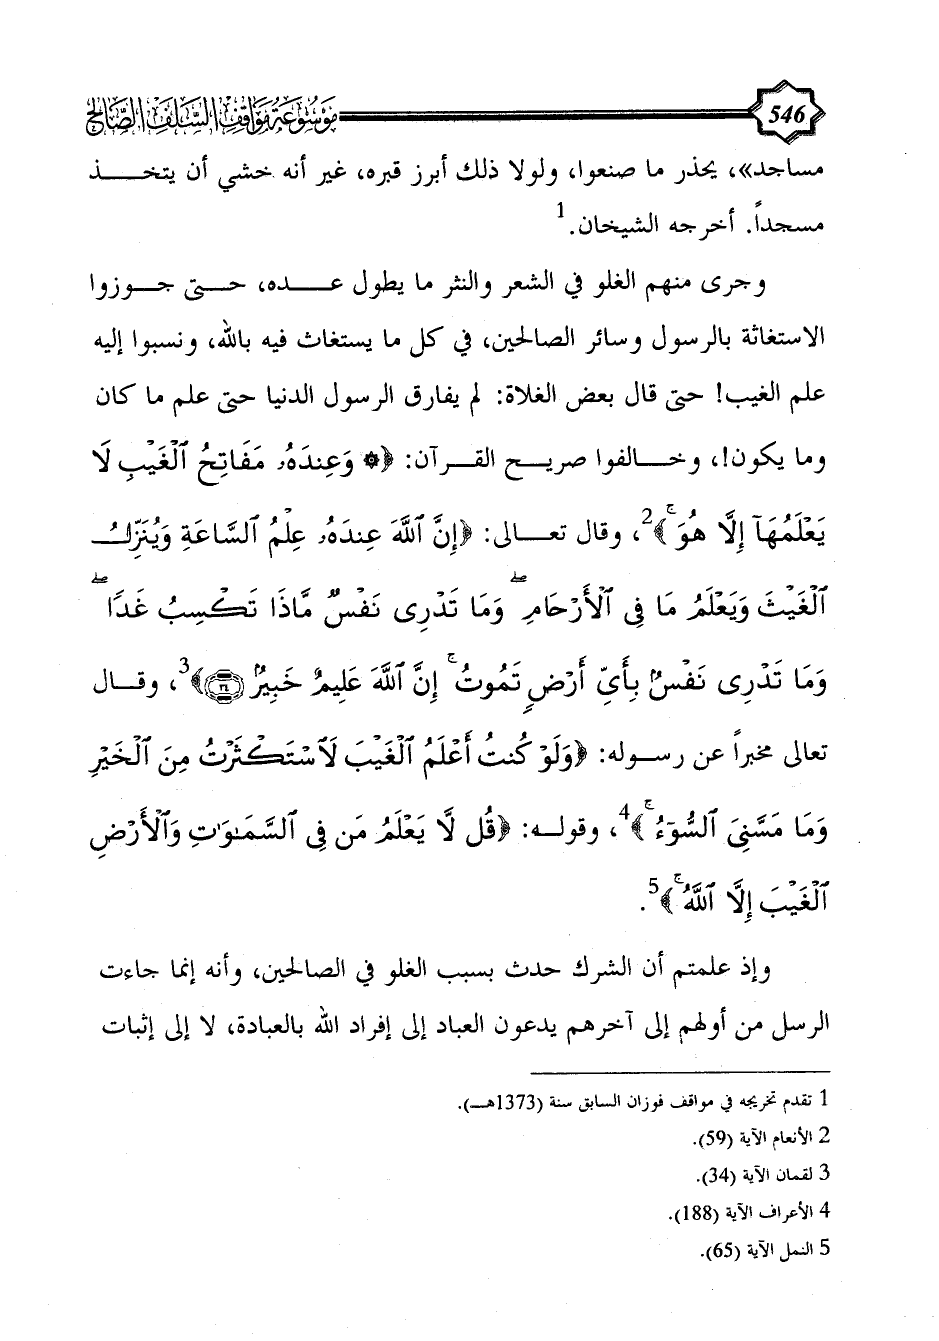 546
موسوعة مواقف السلف الصالح
مساجد»، يحذر ما صنعوا، ولولا ذلك أبرز قبره، غير أنه خشي أن يتخـــــذ
مسجداً. أخرجه الشيخان.1
وجرى منهم الغلو في الشعر والنثر ما يطول عـــــده، حـــتى جـــوزوا
الاستغاثة بالرسول وسائر الصالحين، في كل ما يستغاث فيه بالله، ونسبوا إليه
علم الغيب! حتى قال بعض الغلاة: لم يفارق الرسول الدنيا حتى علم ما كان
وما يكون!، وخـــالفوا صريـــح القـــرآن: ﴿۞ وَعِندَهُۥ مَفَاتِحُ ٱلْغَيْبِ لَا
يَعْلَمُهَآ إِلَّا هُوَ ۚ﴾2، وقال تعـــالى: ﴿إِنَّ ٱللَّهَ عِندَهُۥ عِلْمُ ٱلسَّاعَةِ وَيُنَزِّلُ
ٱلْغَيْثَ وَيَعْلَمُ مَا فِى ٱلْأَرْحَامِ ۖ وَمَا تَدْرِى نَفْسٌ مَّاذَا تَكْسِبُ غَدًا ۖ
وَمَا تَدْرِى نَفْسٌۢ بِأَىِّ أَرْضٍ تَمُوتُ ۚ إِنَّ ٱللَّهَ عَلِيمٌ خَبِيرٌۢ ٣٤﴾3، وقـــال
تعالى مخبراً عن رســـوله: ﴿وَلَوْ كُنتُ أَعْلَمُ ٱلْغَيْبَ لَٱسْتَكْثَرْتُ مِنَ ٱلْخَيْرِ
وَمَا مَسَّنِىَ ٱلسُّوٓءُ ۚ﴾4، وقولـــه: ﴿قُل لَّا يَعْلَمُ مَن فِى ٱلسَّمَٰوَٰتِ وَٱلْأَرْضِ
ٱلْغَيْبَ إِلَّا ٱللَّهُ ۚ﴾5.
وإذ علمتم أن الشرك حدث بسبب الغلو في الصالحين، وأنه إنما جاءت
الرسل من أولهم إلى آخرهم يدعون العباد إلى إفراد الله بالعبادة، لا إلى إثبات
1 تقدم تخريجه في مواقف فوزان السابق سنة (1373هــ).
2 الأنعام الآية (59).
3 لقمان الآية (34).
4 الأعراف الآية (188).
5 النمل الآية (65).